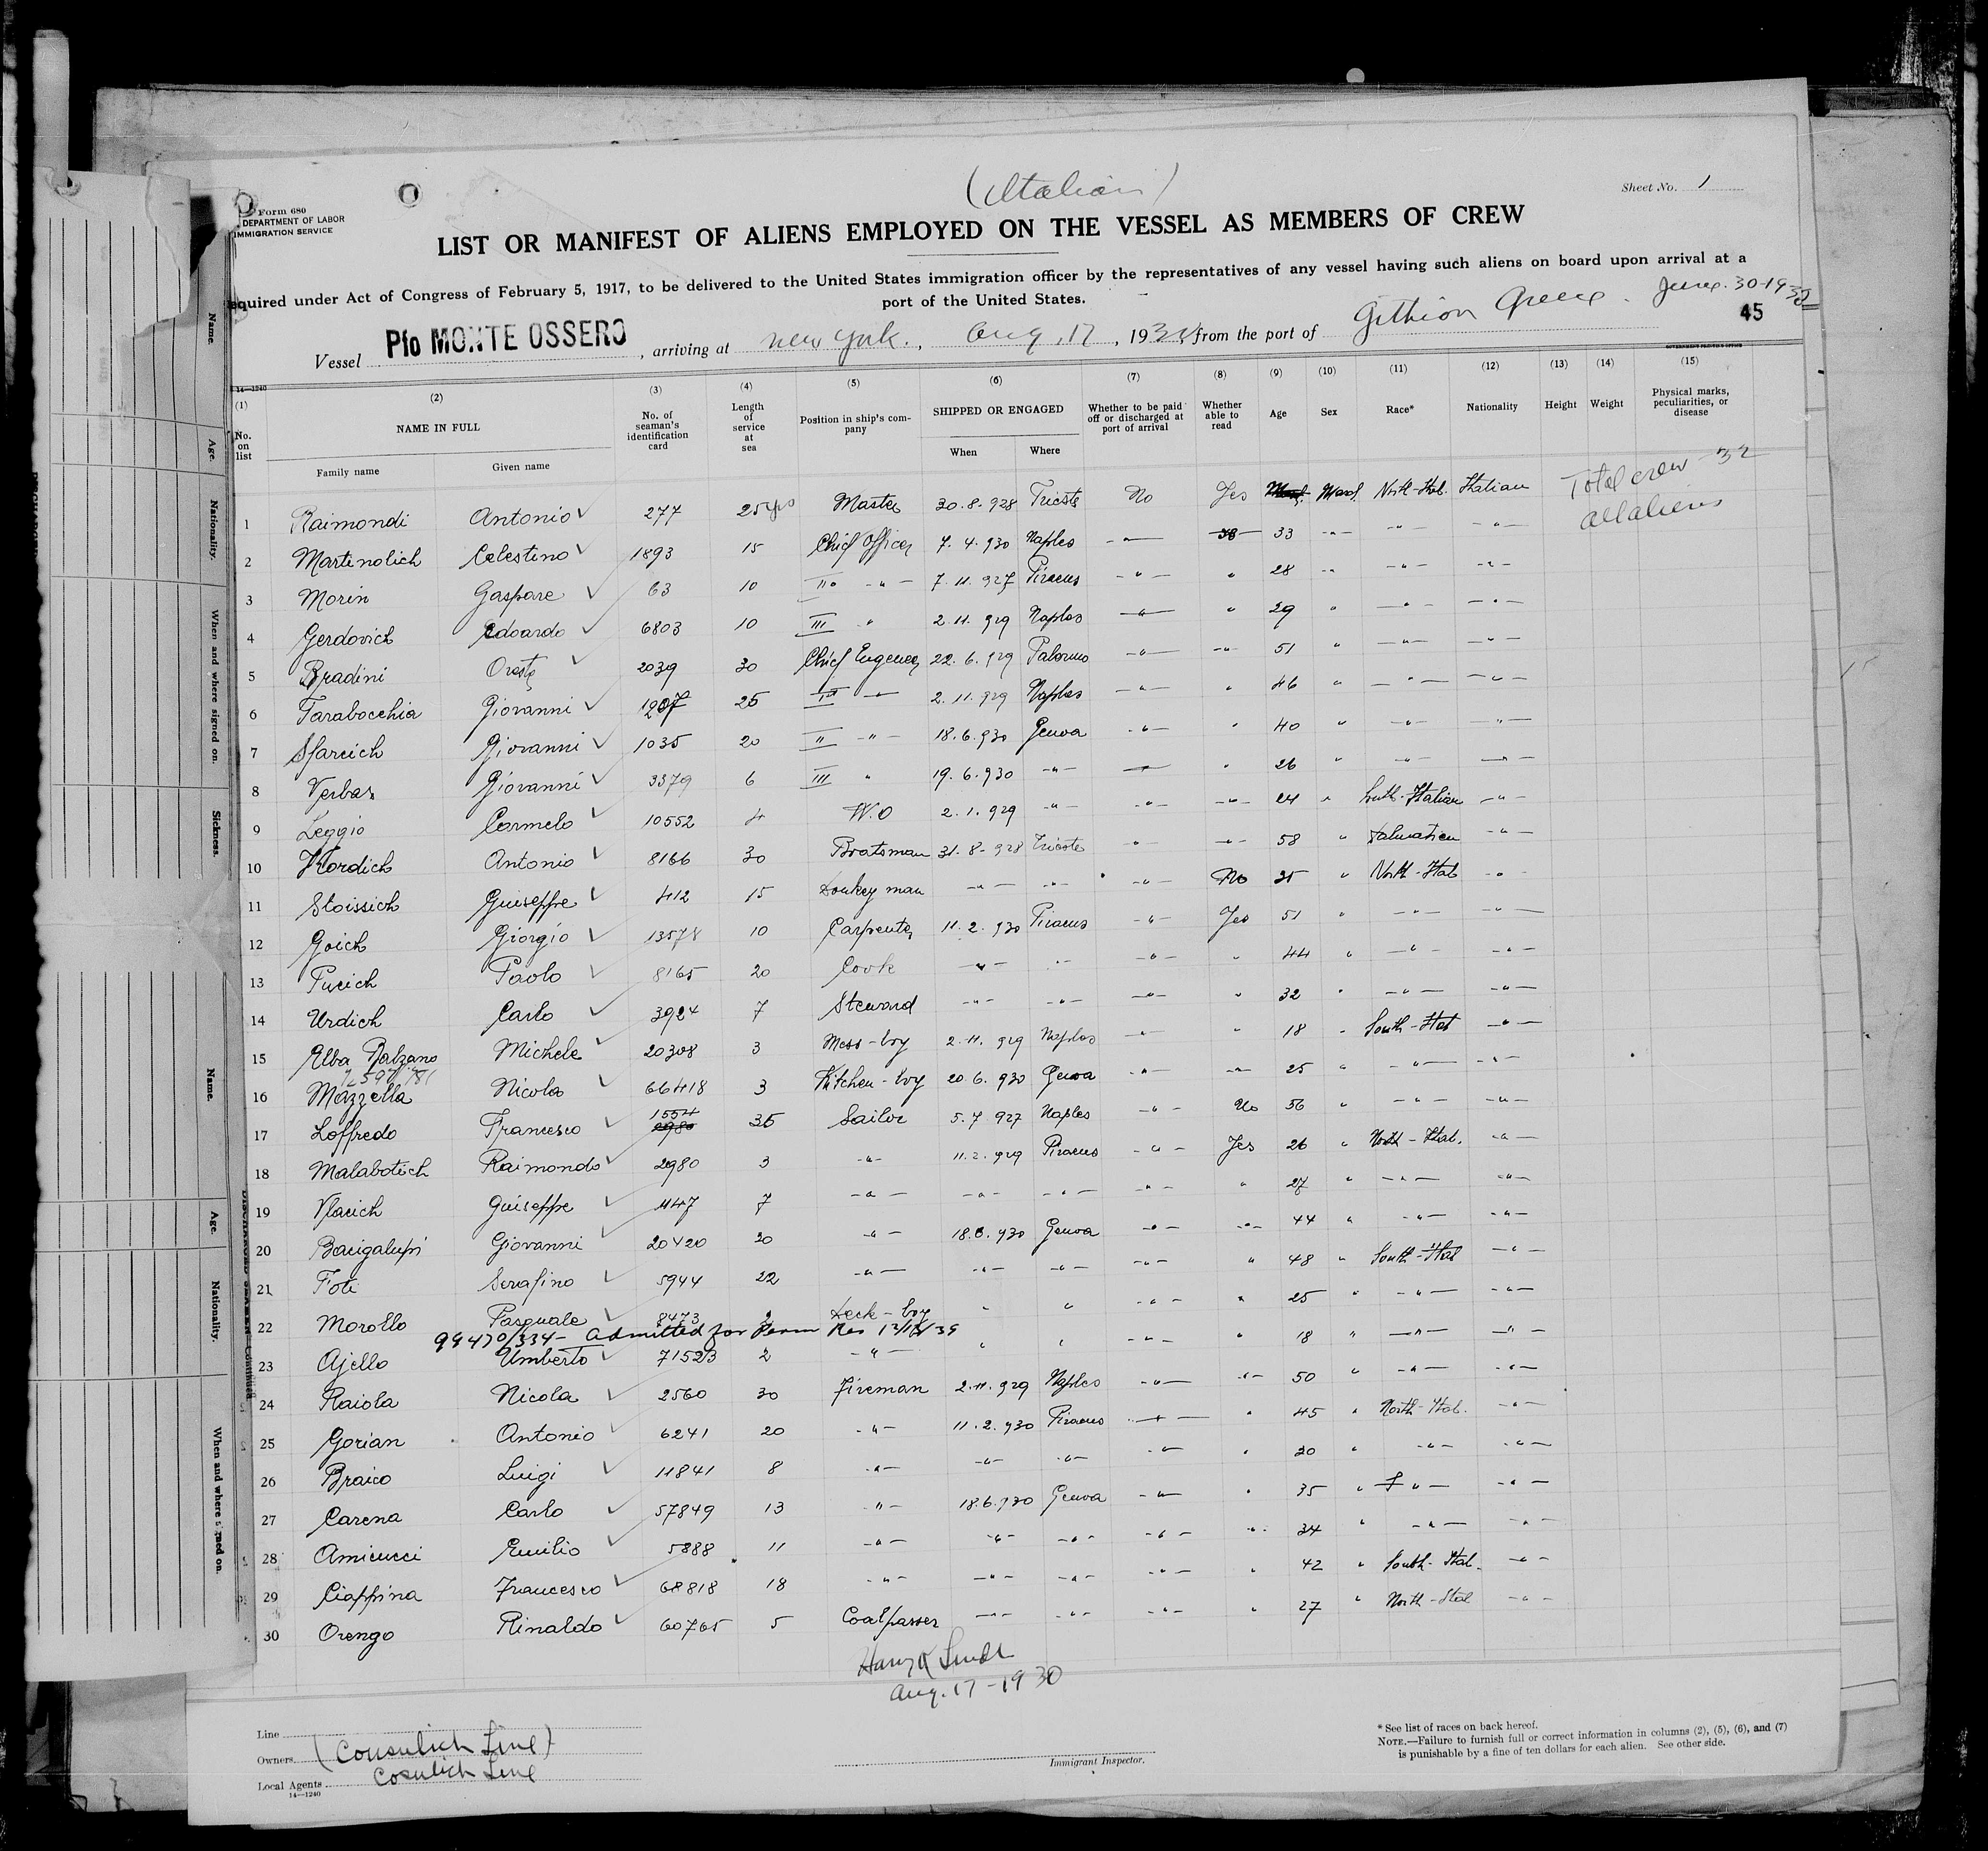 (Italian)
Sheet No. 1
Form 680
DEPARTMENT OF LABOR
IMMIGRATION SERVICE
LIST OR MANIFEST OF ALIENS EMPLOYED ON THE VESSEL AS MEMBERS OF CREW
equired under Act of Congress of February 5, 1917, to be delivered to the United States immigration officer by the representatives of any vessel having such aliens on board upon arrival at a
port of the United States.
Vessel Pfo MONTE OSSERO, arriving at new york., Aug, 17, 1930 from the port of Githion Greece. June. 30-1930
45
14—1240
GOVERNMENT PRINTING OFFICE
(1) (2) (3) (4) (5) (6) (7) (8) (9) (10) (11) (12) (13) (14) (15)
No. on list NAME IN FULL Family name Given name No. of seaman's identification card Length of service at sea Position in ship's company SHIPPED OR ENGAGED When Where Whether to be paid off or discharged at port of arrival Whether able to read Age Sex Race* Nationality Height Weight Physical marks, peculiarities, or disease
Total crew 32
all aliens
1 Raimondi Antonio 277 25 yrs Master 30.8.928 Trieste No Yes Masc. North-Ital. Italian
2 Martinolich Celestino 1893 15 Chief Officer 7.4.930 Naples -"- 38 33 -"- -"- -"-
3 Morin Gaspare 63 10 IIo -"- 7.11.927 Piraeus -"- " 28 -"- -"- -"-
4 Gerdovich Edoardo 6803 10 III " 2.11.929 Naples -"- " 29 " -"- -"-
5 Bradini Oreste 2039 30 Chief Engeneer 22.6.929 Palermo -"- -"- 51 " -"- -"-
6 Tarabocchia Giovanni 1207 25 Ist -"- 2.11.929 Naples -"- " 46 " -"- -"-
7 Sfarcich Giovanni 1035 20 II -"- 18.6.930 Genoa -"- " 40 " -"- "-
8 Verbas Giovanni 3379 6 III " 19.6.930 -"- -"- " 26 " -"- -"-
9 Leggio Carmelo 10552 4 W.O 2.1.929 -"- -"- -"- 24 " South-Italian -"-
10 Hordich Antonio 8166 30 Boatsman 31.8-928 Trieste -"- -"- 58 " Dalmatien -"-
11 Stoissich Guiseppe 412 15 Donkey man -"- -"- -"- No 35 " North-Ital -"-
12 Goich Giorgio 13578 10 Carpenter 11.2.930 Piraeus -"- Yes 51 " -"- -"-
13 Pucich Paolo 8165 20 Cook -"- -"- -"- " 44 " -"- -"-
14 Urdich Carlo 3924 7 Steward -"- -"- -"- " 32 " -"- -"-
15 Elba Balzano Michele 20308 3 Mess-boy 2.11.929 Naples -"- " 18 " South-Ital -"-
16 Mazzella Nicola 66418 3 Kitchen-boy 20.6.930 Genoa -"- -"- 25 " -"- -"-
17 Loffredo Francesco 1554 2980 35 Sailor 5.7.927 Naples -"- No 56 " -"- -"-
18 Malabotich Raimondo 2980 3 -"- 11.2.929 Piraeus -"- Yes 26 " North-Ital. -"-
19 Vlacich Guiseppe 4147 7 -"- -"- -"- -"- " 27 " -"- -"-
20 Bacigalupi Giovanni 20420 20 -"- 18.6.930 Genoa -"- -"- 44 " -"- -"-
21 Foti Serafino 5944 22 -"- -"- -"- -"- " 48 " South-Ital -"-
22 Morollo Pasquale 8473 2 Deck-boy " " -"- " 25 " -"- -"-
99470/334- admitted for Perm Res 12/12/39
23 Ajello Umberto 71523 2 -"- " " -"- " 18 " -"- -"-
24 Raiola Nicola 2560 30 Fireman 2.11.929 Naples -"- -"- 50 " -"- -"-
25 Gorian Antonio 6241 20 -"- 11.2.930 Piraeus -"- " 45 " North-Ital. -"-
26 Braico Luigi 11841 8 -"- -"- -"- -"- " 30 " -"- -"-
27 Carena Carlo 57849 13 -"- 18.6.930 Genoa -"- " 35 " -"- -"-
28 Amicucci Emilio 5888 11 -"- -"- -"- -"- " 34 " -"- -"-
29 Ciappina Francesco 68818 18 -"- -"- -"- -"- " 42 " South-Ital. -"-
30 Orengo Rinaldo 60765 5 Coalpasser -"- -"- -"- " 27 " North-Ital -"-
Aug. 17-1930
Line
Owners (Consulich Line)
Local Agents Cosulich Line
14—1240
Immigrant Inspector.
* See list of races on back hereof.
NOTE.—Failure to furnish full or correct information in columns (2), (5), (6), and (7)
is punishable by a fine of ten dollars for each alien. See other side.
Name.
Age.
Nationality.
When and where signed on.
Sickness.
Name.
Age.
Nationality.
When and where signed on.